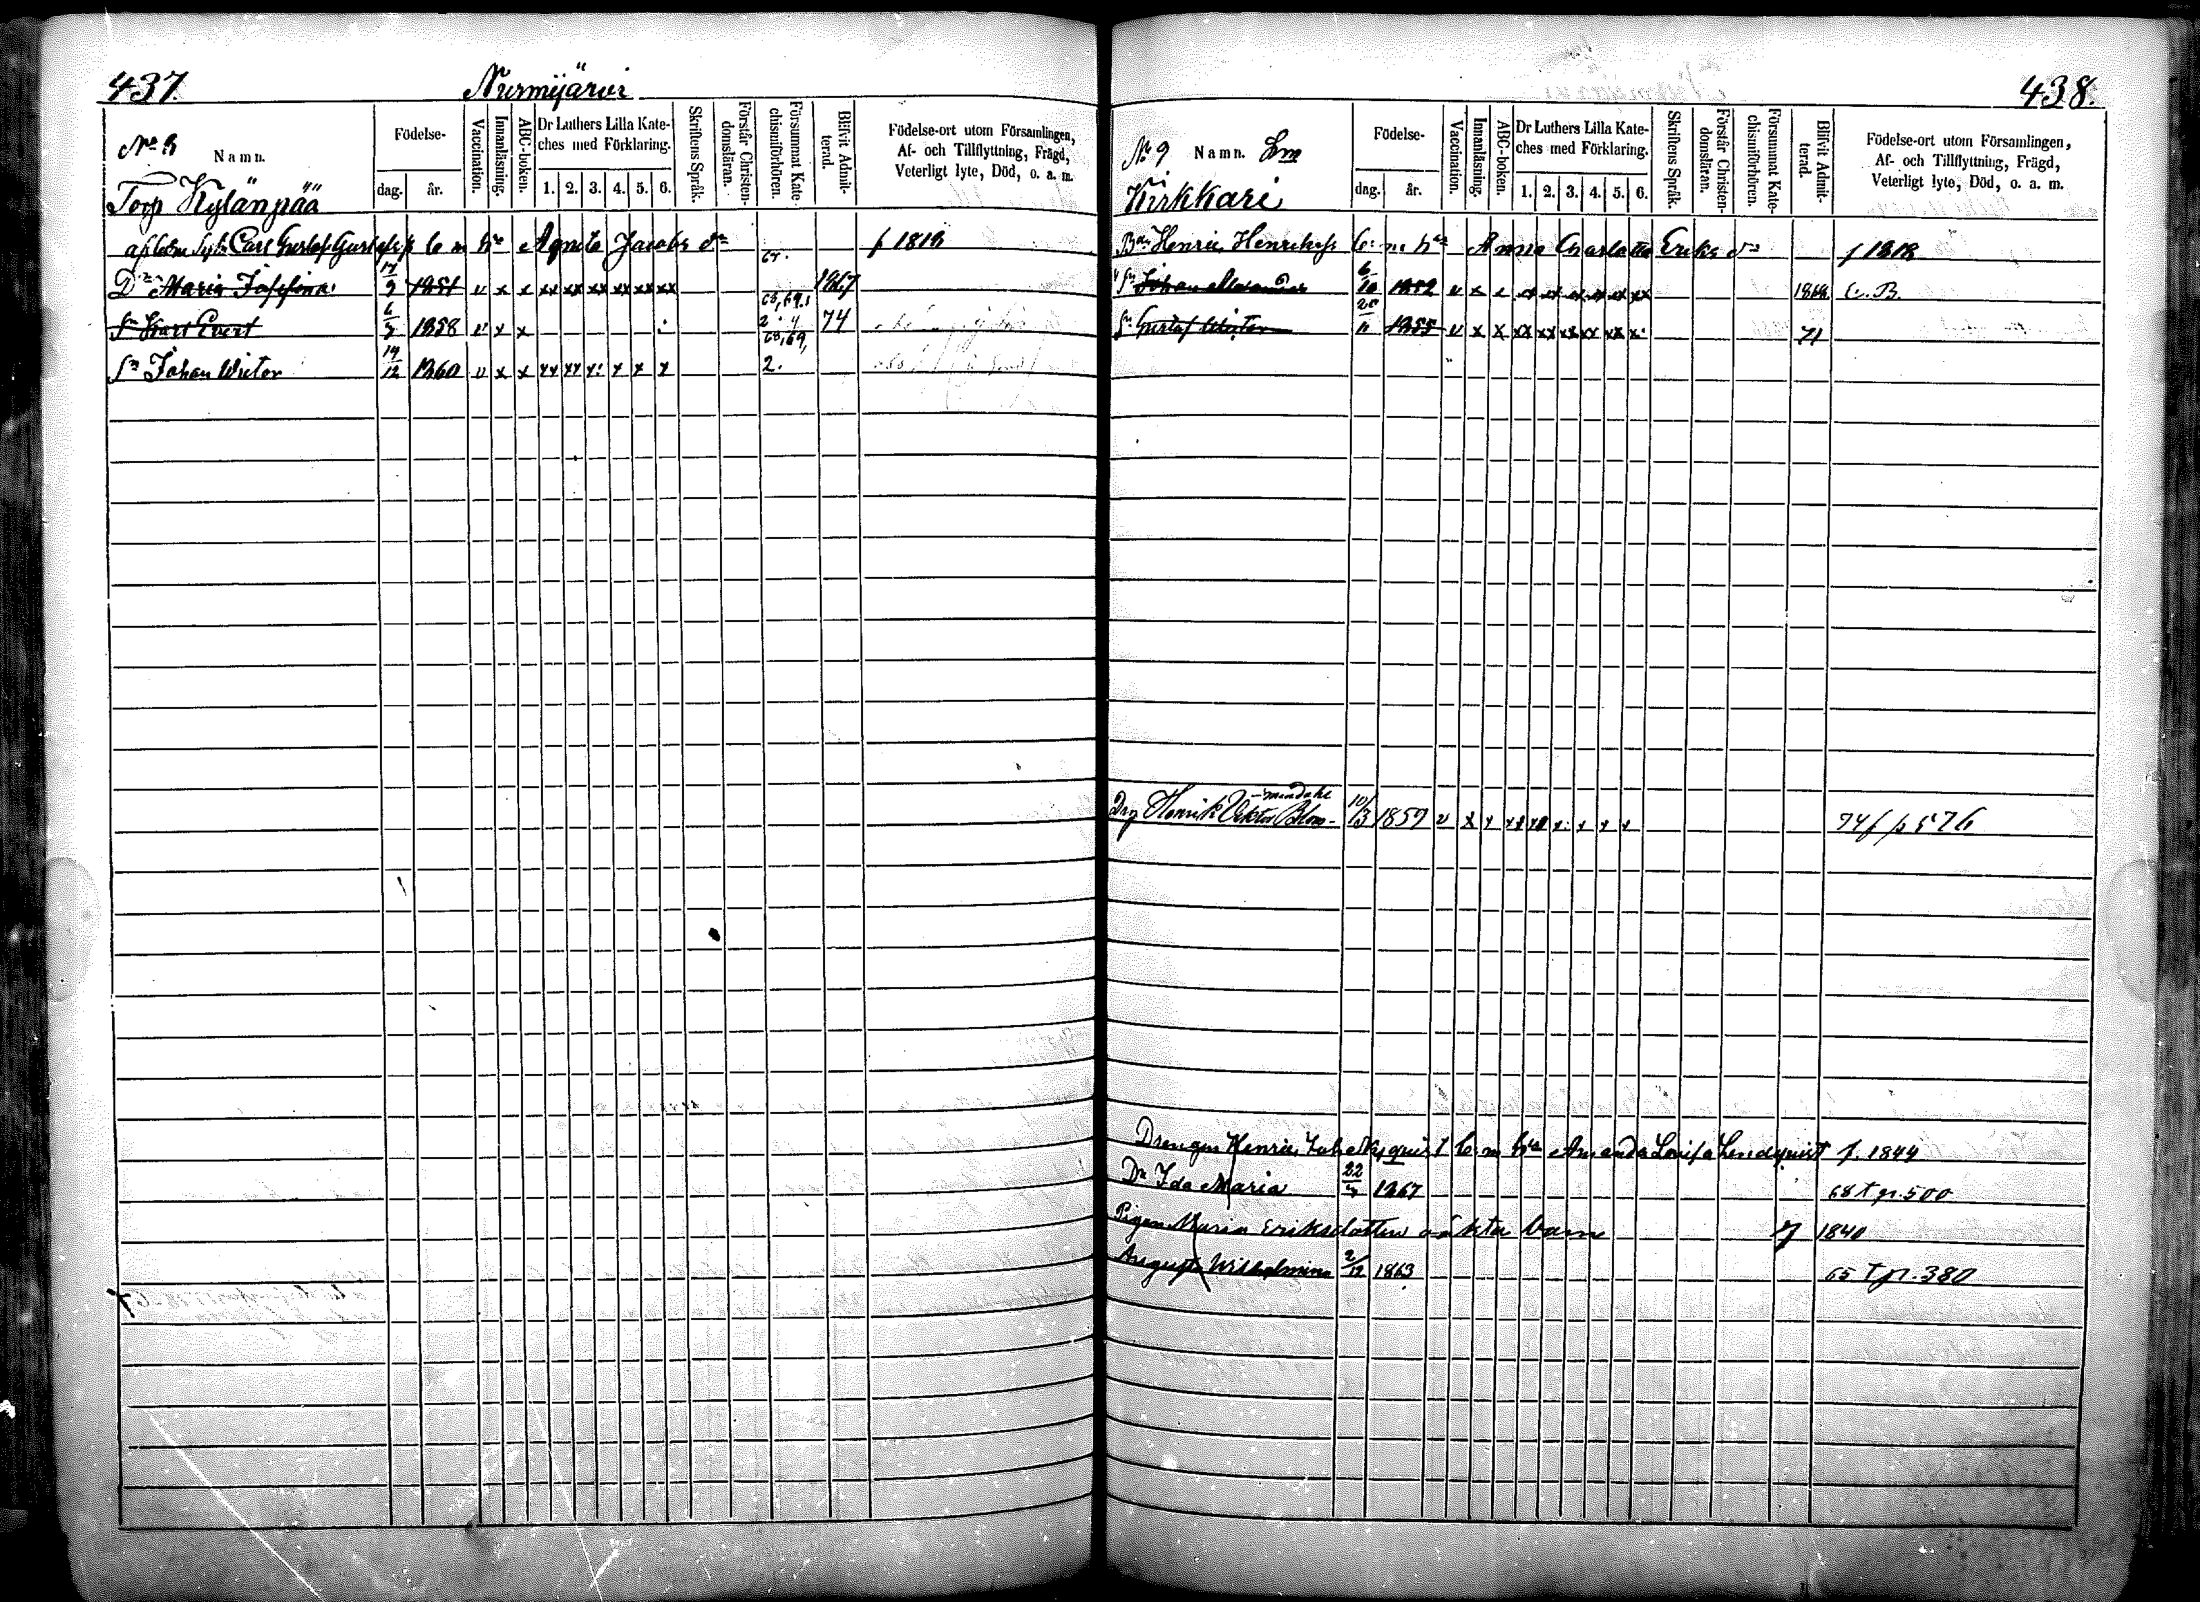 437.
Nurmijärvi
No 8
Namn.
Födelse-
dag. år.
Vaccination.
Innanläsning.
ABC-boken.
Dr Luthers Lilla Kateches med Förklaring.
1. 2. 3. 4. 5. 6.
Skriftens Språk.
Förstår Christendomsläran.
Försummat Katechismiförhören.
Blifvit Admitterad.
Födelse-ort utom Församlingen,
Af- och Tillflyttning, Frägd,
Veterligt lyte, Död, o. a. m.
Torp Kylänpää
Carl Gustaf Gust C m h Agneta Jacobs dr f 1818
Dr Maria Josefina 17/9 1851 v x x xx xx xx xx xx xx 1867
Sn Karl Evert 6/3 1858 v x x 68,69, 2 4 74
Sn Johan Wictor 14/12 1860 v x x xx xx x: x x x 68,69, 2.
438.
No 9 Namn. Lm
Födelse-
dag. år.
Vaccination.
Innanläsning.
ABC-boken.
Dr Luthers Lilla Kateches med Förklaring.
1. 2. 3. 4. 5. 6.
Skriftens Språk.
Förstår Christendomsläran.
Försummat Katechismiförhören.
Blifvit Admitterad.
Födelse-ort utom Församlingen,
Af- och Tillflyttning, Frägd,
Veterligt lyte, Död, o. a. m.
Kirkkari
Bn Henric Henriksn C. m. hs Anna Charlotta Eriks dr f 1818
Sn Johan Alexander 6/10 1852 v x x xx xx xx xx xx xx 1868
Sn Gustaf Wictor 20/11 1855 v x x xx xx xx xx xx x: 71
Drg Henrik Viktor Blom- 10/3 1859 v x x xx xx x: x x x 74 f p 576
Drengen Henric Joh Nyqvist C. m. hn Amanda Lovisa Lindqvist f. 1844
Dr Ida Maria 22/3 1867 68 t p. 500
Pigan Maria Eriksdotter oäkta barn f 1840
Augusta Wilhelmina 2/12 1863 65 t p. 380